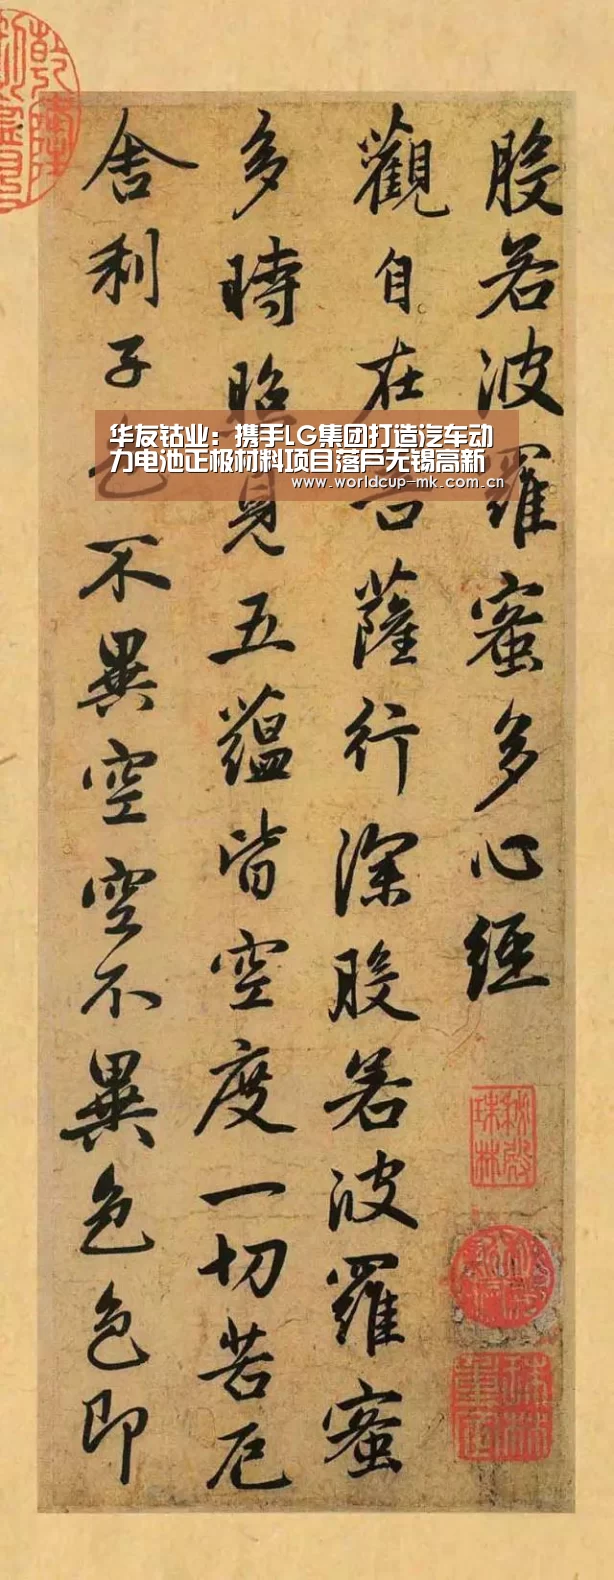 般若波羅蜜多心經
觀自在菩薩行深般若波羅蜜
多時照見五蘊皆空度一切苦厄
舍利子色不異空空不異色色即
华友钴业：携手LG集团打造汽车动
力电池正极材料项目落户无锡高新
www.worldcup-mk.com.cn
秘殿珠林
珠林重定